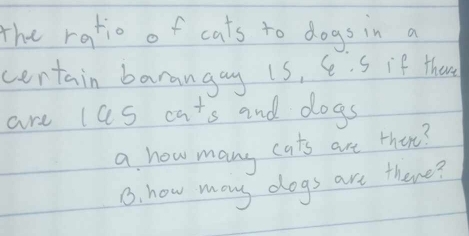 the ratio of cats to dogs in a
certain barangay is, 4:5 if there
are 145 cats and dogs
a. how many cats are there?
B. how many dogs are there?